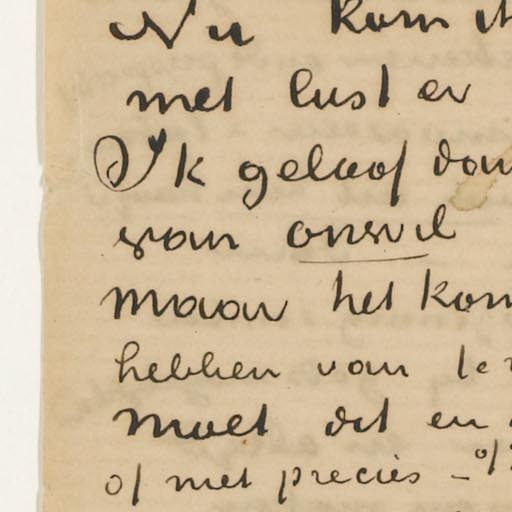 Nu kom ik
met lust er
Ik geloof dan
van onwil
maar het kan
hebben van te
moet dit en
of niet precies - of